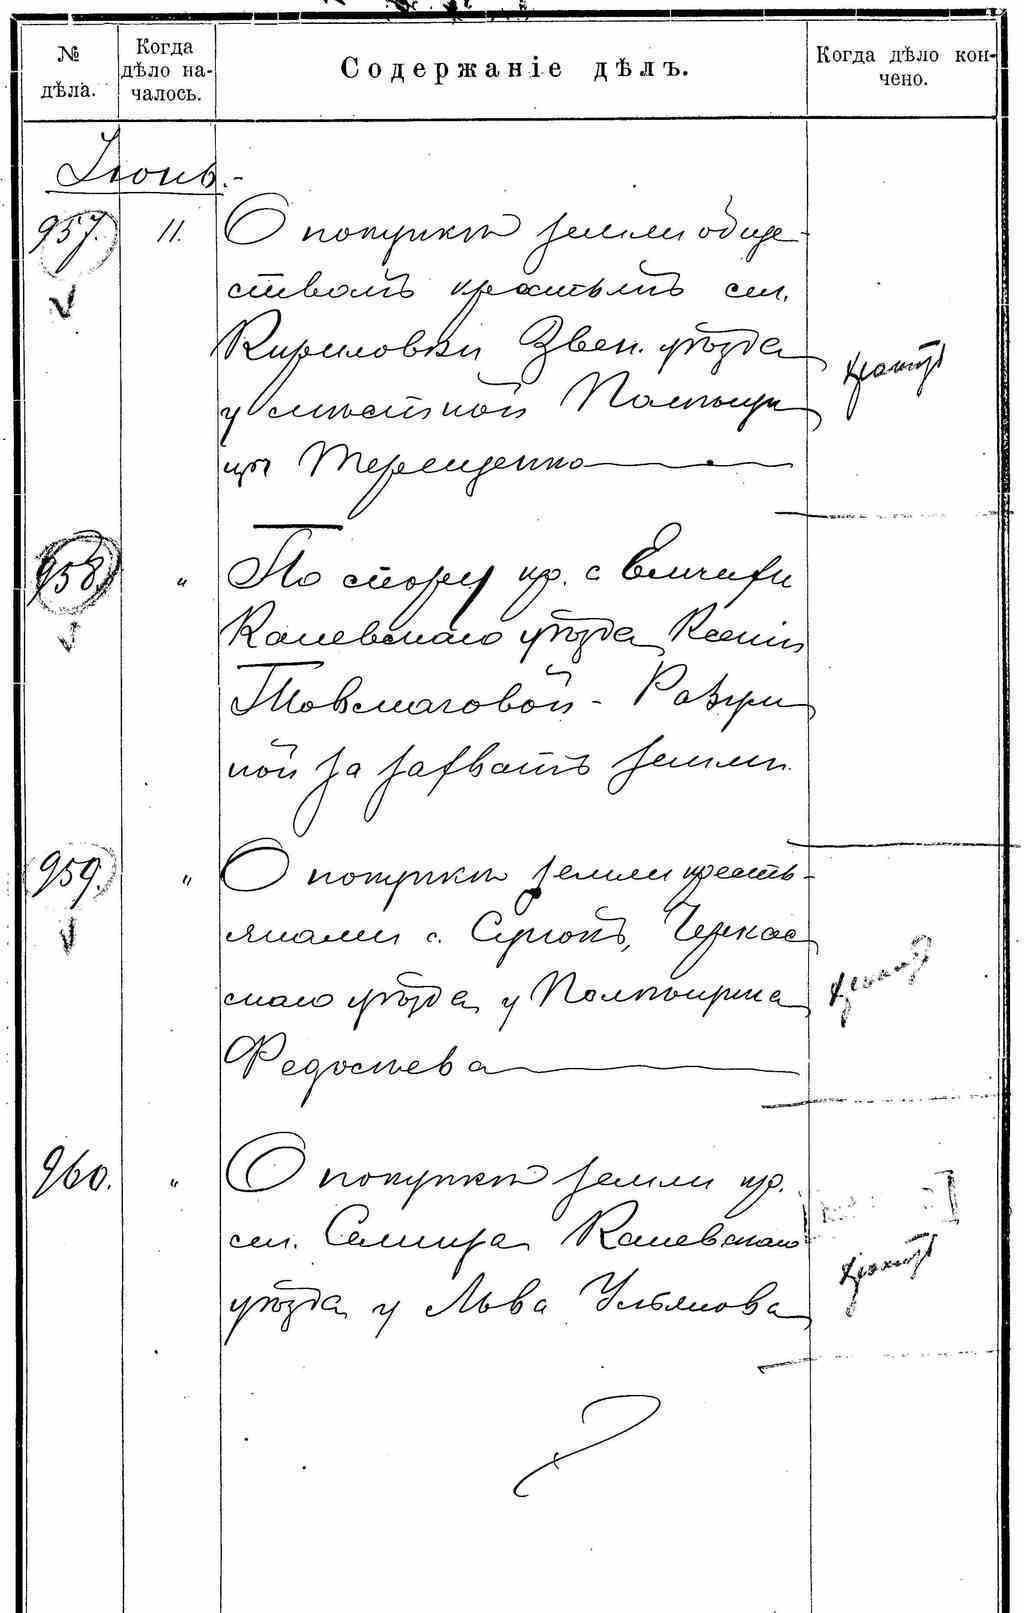 № дѣла.
Когда дѣло на-
чалось.
Содержаніе дѣлъ.
Когда дѣло кон-
чено.
Іюнь.-
957. 11. О покупкѣ земли обще-
ствомъ крестьянъ сел.
Кириловки Звен. уѣзда
у мѣстной Помѣщи
цы Терещенко
958. " По спору кр. с.
Каневскаго уѣзда Ксеніи
Товмачовой - Разум
ной за захватъ земли.
959. " О покупкѣ земли кресть-
янами с. Сунокъ, Черкас
скаго уѣзда у Помѣщика
Федосѣева
960. " О покупкѣ земли кр.
сел. Селища Каневскаго
уѣзда у Льва Ульянова